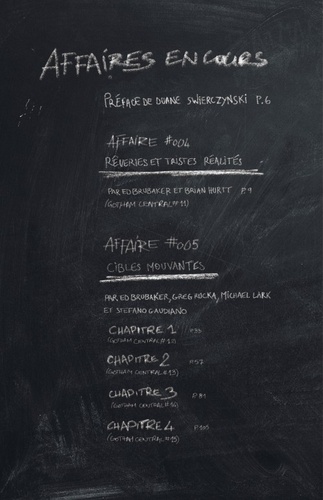 AFFAIRES EN COURS
PRÉFACE DE DUANE SWIERCZYNSKI P.6
AFFAIRE #004
RÊVERIES ET TRISTES RÉALITÉS
PAR ED BRUBAKER ET BRIAN HURTT P.9
(GOTHAM CENTRAL #11)
AFFAIRE #005
CIBLES MOUVANTES
PAR ED BRUBAKER, GREG RUCKA, MICHAEL LARK
ET STEFANO GAUDIANO
CHAPITRE 1
(GOTHAM CENTRAL #12)
CHAPITRE 2 P.57
(GOTHAM CENTRAL #13)
CHAPITRE 3 P.81
(GOTHAM CENTRAL #14)
CHAPITRE 4
(GOTHAM CENTRAL #15)